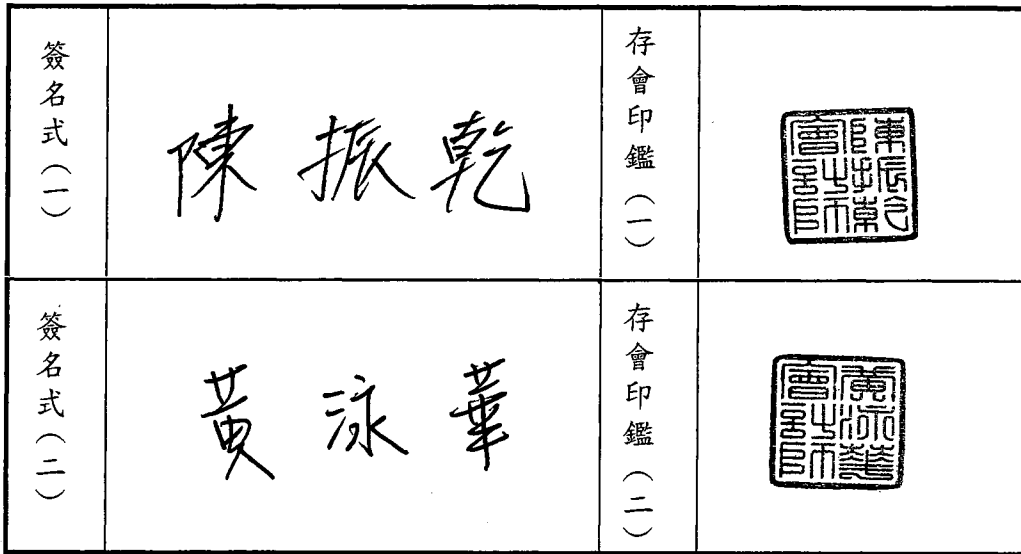 簽名式(一)
陳振乾
存會印鑑(一)
陳振乾會計師
簽名式(二)
黃泳華
存會印鑑(二)
黃泳華會計師